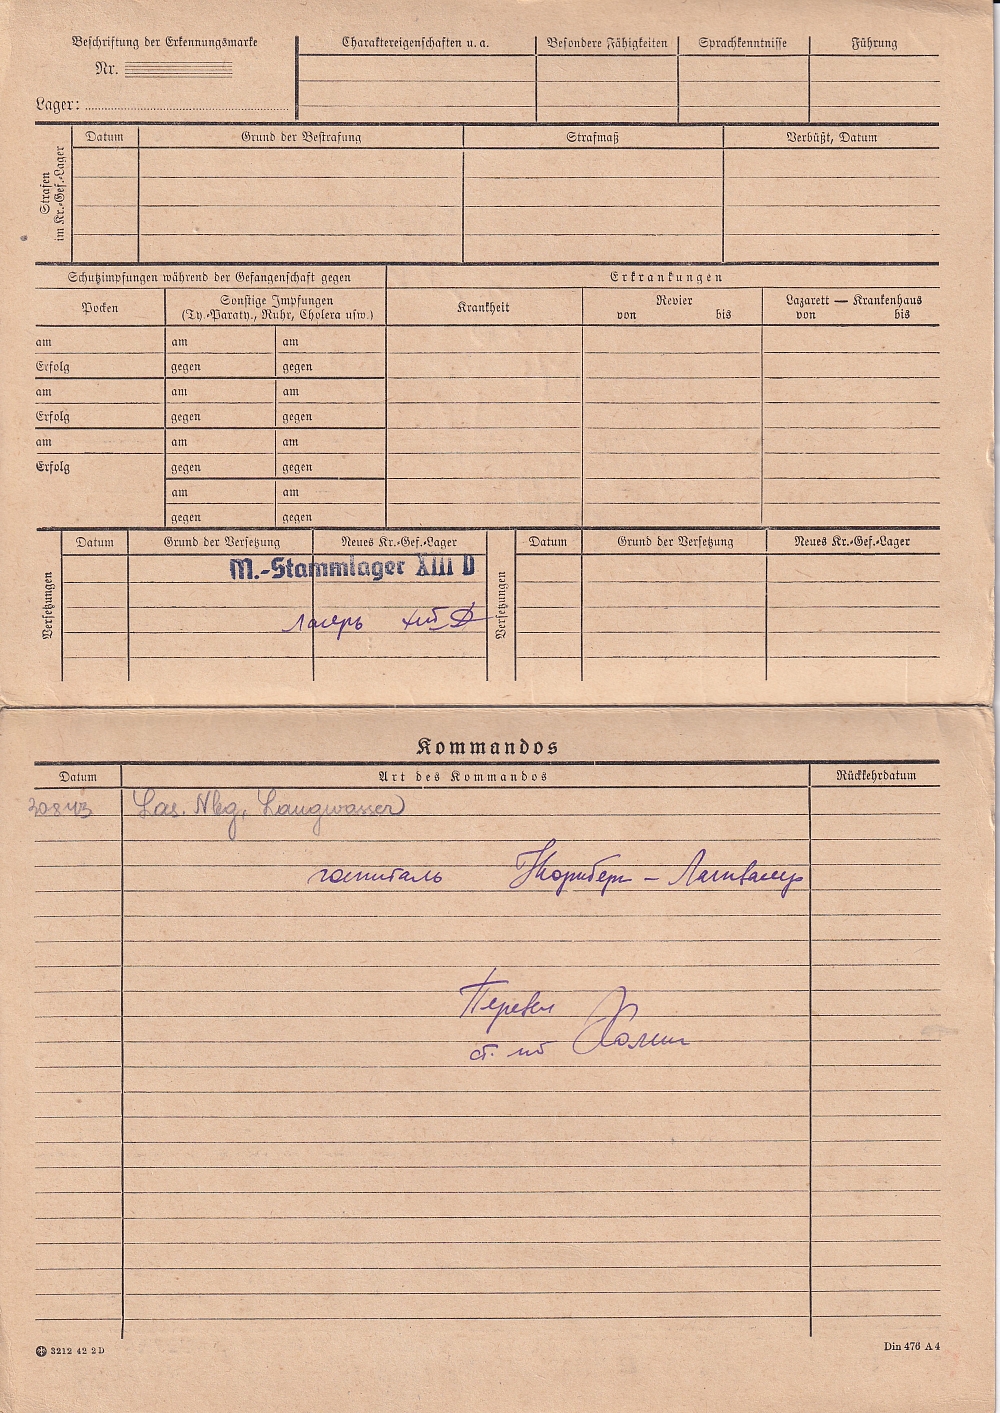 Beschriftung der Erkennungsmarke
Nr.
Lager:
Charaktereigenschaften u. a. Besondere Fähigkeiten Sprachkenntnisse Führung
Strafen im Kr.-Gef.-Lager
Datum Grund der Bestrafung Strafmaß Verbüßt, Datum
Schutzimpfungen während der Gefangenschaft gegen
Pocken
Sonstige Impfungen
(Ty.-Paraty., Ruhr, Cholera usw.)
am am am
Erfolg gegen gegen
am am am
Erfolg gegen gegen
am am am
Erfolg gegen gegen
am am
gegen gegen
Erkrankungen
Krankheit
Revier
von bis
Lazarett — Krankenhaus
von bis
Versetzungen
Datum Grund der Versetzung Neues Kr.-Gef.-Lager
M.-Stammlager XIII D
Лагерь XIII D
Versetzungen
Datum Grund der Versetzung Neues Kr.-Gef.-Lager
Kommandos
Datum Art des Kommandos Rückkehrdatum
30.8.43 Las. Nbg. Langwasser
госпиталь Нюрнберг - Лангвассер
Перевел
ст. л-т
3212 42 2 D
Din 476 A 4